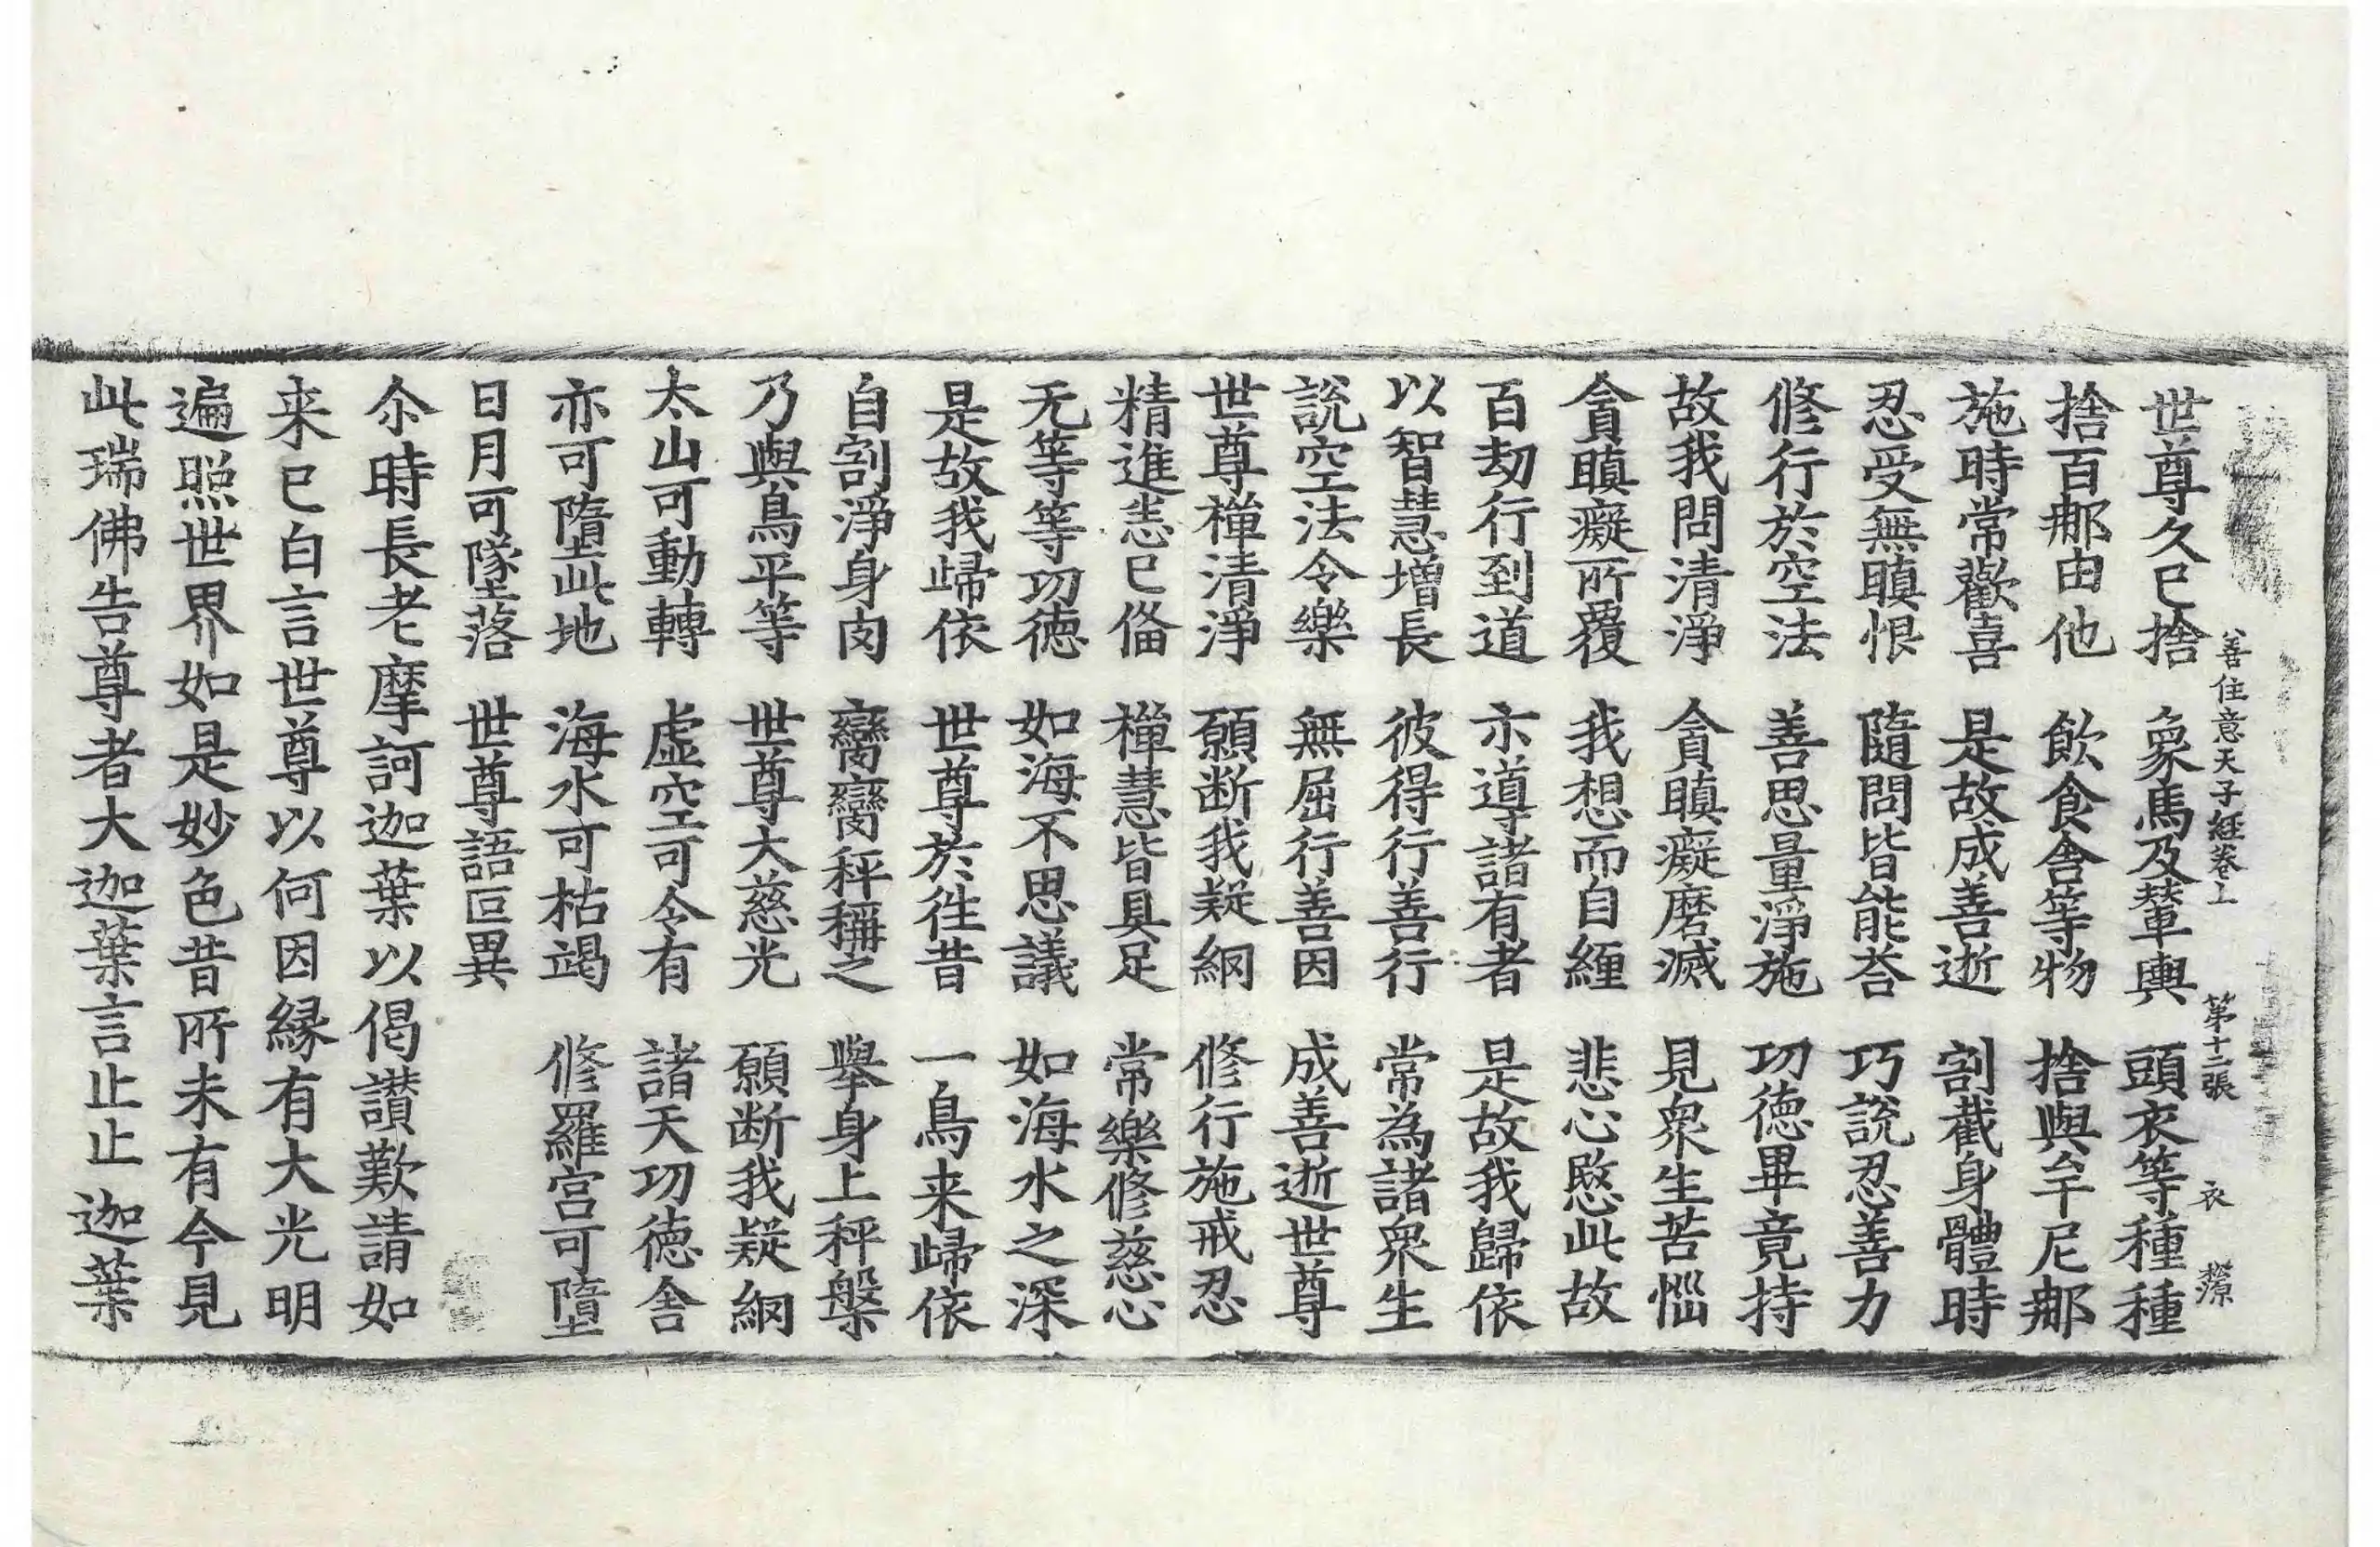 善住意天子経卷上 第十二張 衣 㵛
世尊久已捨 象馬及輦輿 頭衣等種種
捨百那由他 飲食舍等物 捨與牟尼那
施時常歡喜 是故成善逝 割截身體時
忍受無瞋恨 隨問皆能荅 巧說忍善力
修行於空法 善思量淨施 功徳畢竟持
故我問清淨 貪瞋癡磨滅 見衆生苦惱
貪瞋癡所覆 我想而自纏 悲心愍此故
百劫行到道 亦導諸有者 是故我歸依
以智慧增長 彼得行善行 常為諸衆生
說空法令樂 無屈行善因 成善逝世尊
世尊禪清淨 願断我疑網 修行施戒忍
精進悉已俻 禪慧皆具足 常樂修慈心
无等等等功徳 如海不思議 如海水之深
是故我歸依 世尊於往昔 一鳥来歸依
自割淨身肉 臠臠秤稱之 舉身上秤槃
乃與鳥平等 世尊大慈光 願断我疑網
太山可動轉 虛空可令有 諸天功徳舍
亦可墮此地 海水可枯竭 修羅宫可墮
日月可墜落 世尊語叵異
尒時長老摩訶迦葉以偈讃歎請如
来已白言世尊以何因縁有大光明
遍照世界如是妙色昔所未有今見
此瑞佛告尊者大迦葉言止止迦葉